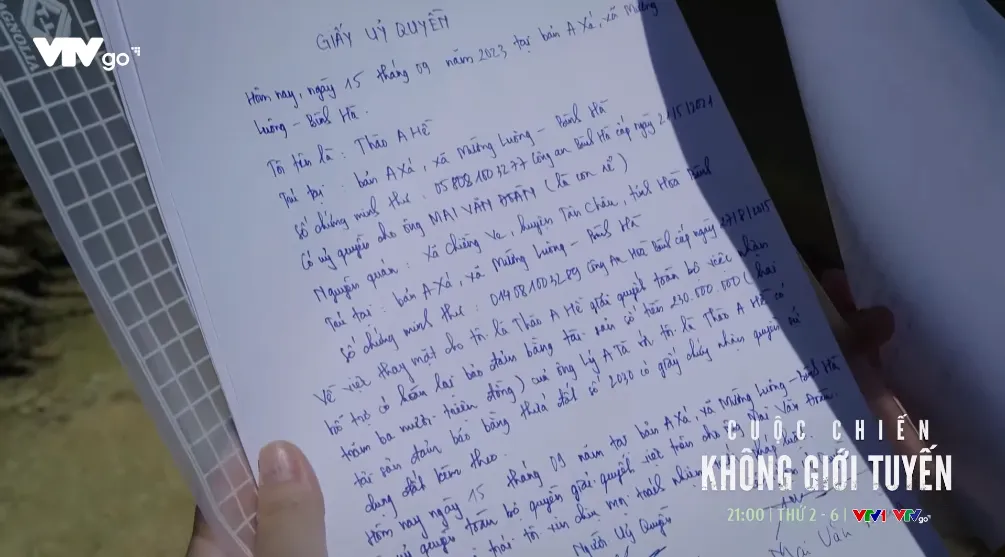 VTVgo
GIẤY UỶ QUYỀN
Hôm nay, ngày 15 tháng 09 năm 2023 tại bản A Xá, xã Mường
Luông - Bình Hà.
Tôi tên là: Thào A Hề
Trú tại: bản A Xá, xã Mường Luông - Bình Hà
Số chứng minh thư: 058081003277 Công an Bình Hà cấp ngày 21/5/2021
Có uỷ quyền cho ông MAI VĂN ĐOÀN (là con rể)
Nguyên quán: Xã Chiềng Ve, huyện Tân Châu, tỉnh Hoà Bình
Trú tại: bản A Xá, xã Mường Luông - Bình Hà
Số chứng minh thư: 014081003289 Công An Hoà Bình cấp ngày 27/8/2015
Về việc thay mặt cho tôi là Thào A Hề giải quyết toàn bộ việc nhận
hỗ trợ có hoàn lại bảo đảm bằng tài sản số tiền 230.000.000 (hai
trăm ba mươi triệu đồng) của ông Lý A Tà với tôi là Thào A Hề có
tài sản đảm bảo bằng thửa đất số 2030 có giấy chứng nhận quyền sử
dụng đất kèm theo.
Hôm nay ngày 15 tháng 09 năm tại bản A Xá, xã Mường Luông - Bình Hà
quyền toàn bộ quyền giải quyết việc trên cho ông Mai Văn Đoàn.
trái tôi xin chịu mọi trách nhiệm
Người Uỷ Quyền
Mai Văn
CUỘC CHIẾN
KHÔNG GIỚI TUYẾN
21:00 | THỨ 2 - 6 | VTV1 VTVgo